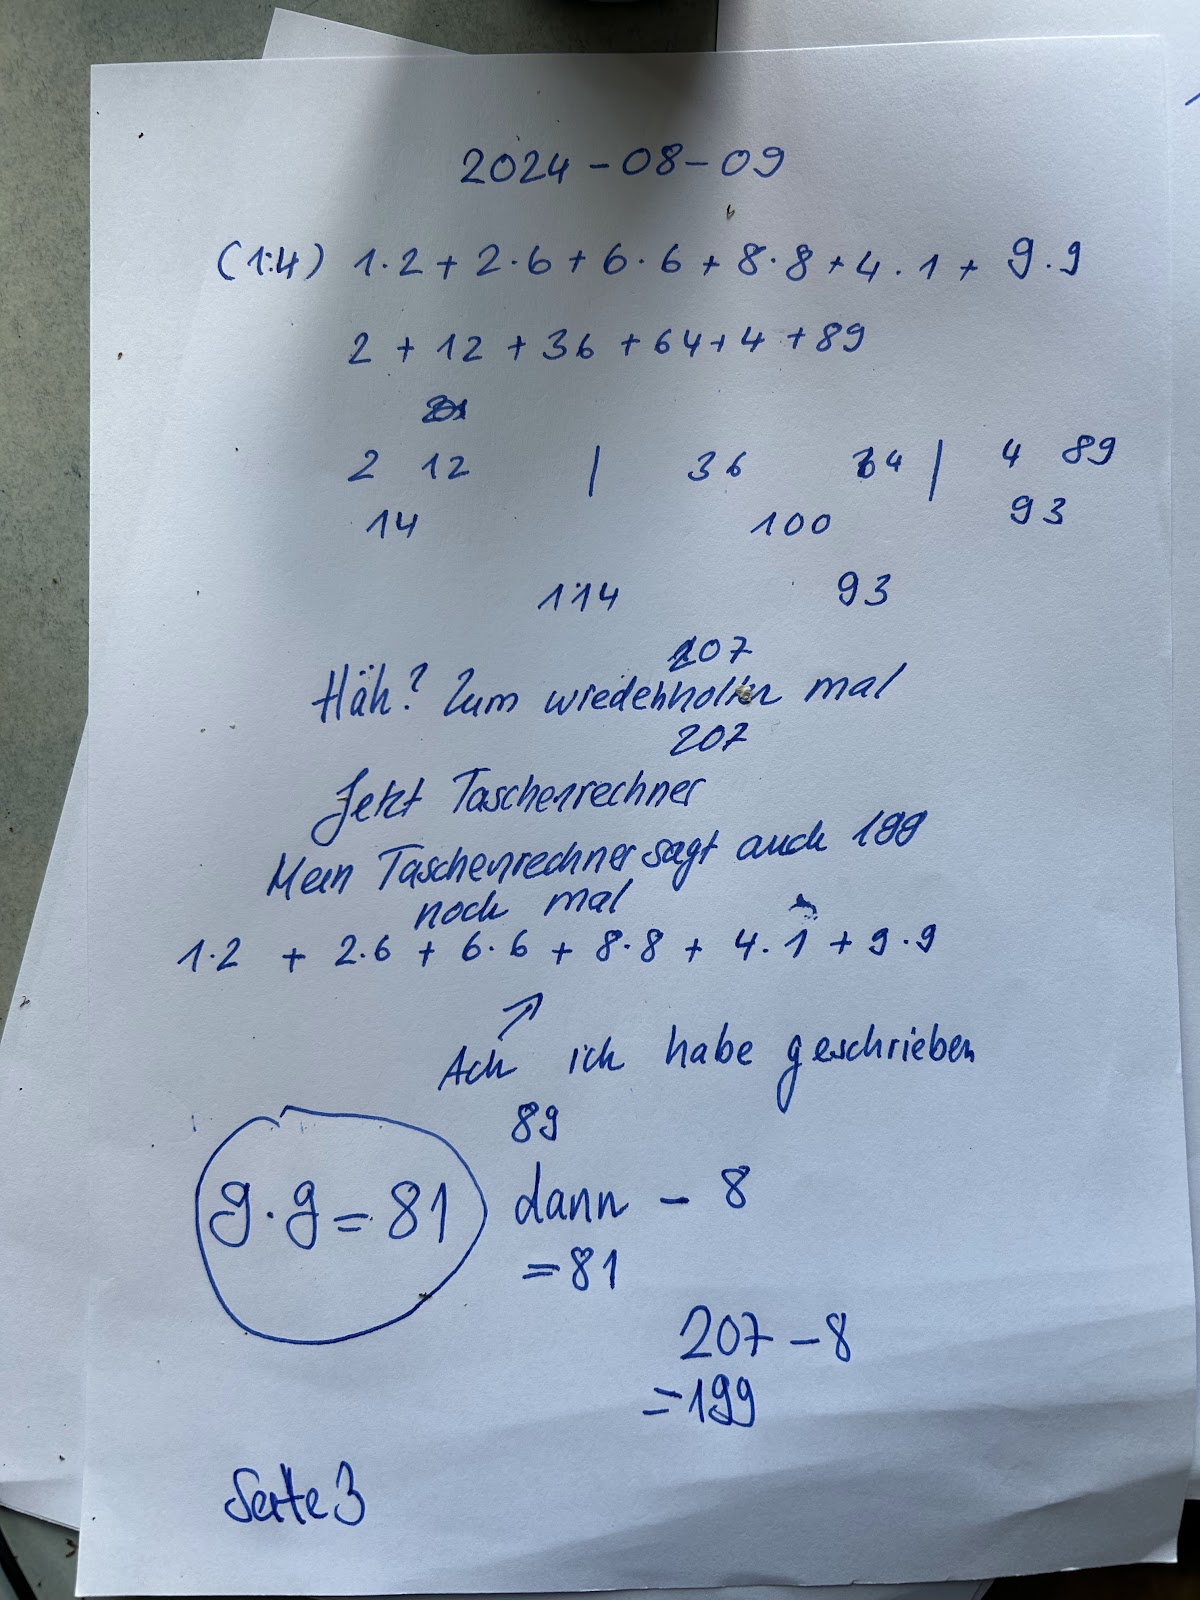 2024-08-09
(1:4) 1·2 + 2·6 + 6·6 + 8·8 + 4·1 + 9·9
2 + 12 + 36 + 64 + 4 + 89
2 12 | 36 64 | 4 89
14 100 93
114 93
207
Häh? Zum wiederholten mal
207
Jetzt Taschenrechner
Mein Taschenrechner sagt auch 199
noch mal
1·2 + 2·6 + 6·6 + 8·8 + 4·1 + 9·9
↗
Ach ich habe geschrieben
89
9·9 = 81 dann - 8
= 81
207 - 8
= 199
Seite 3